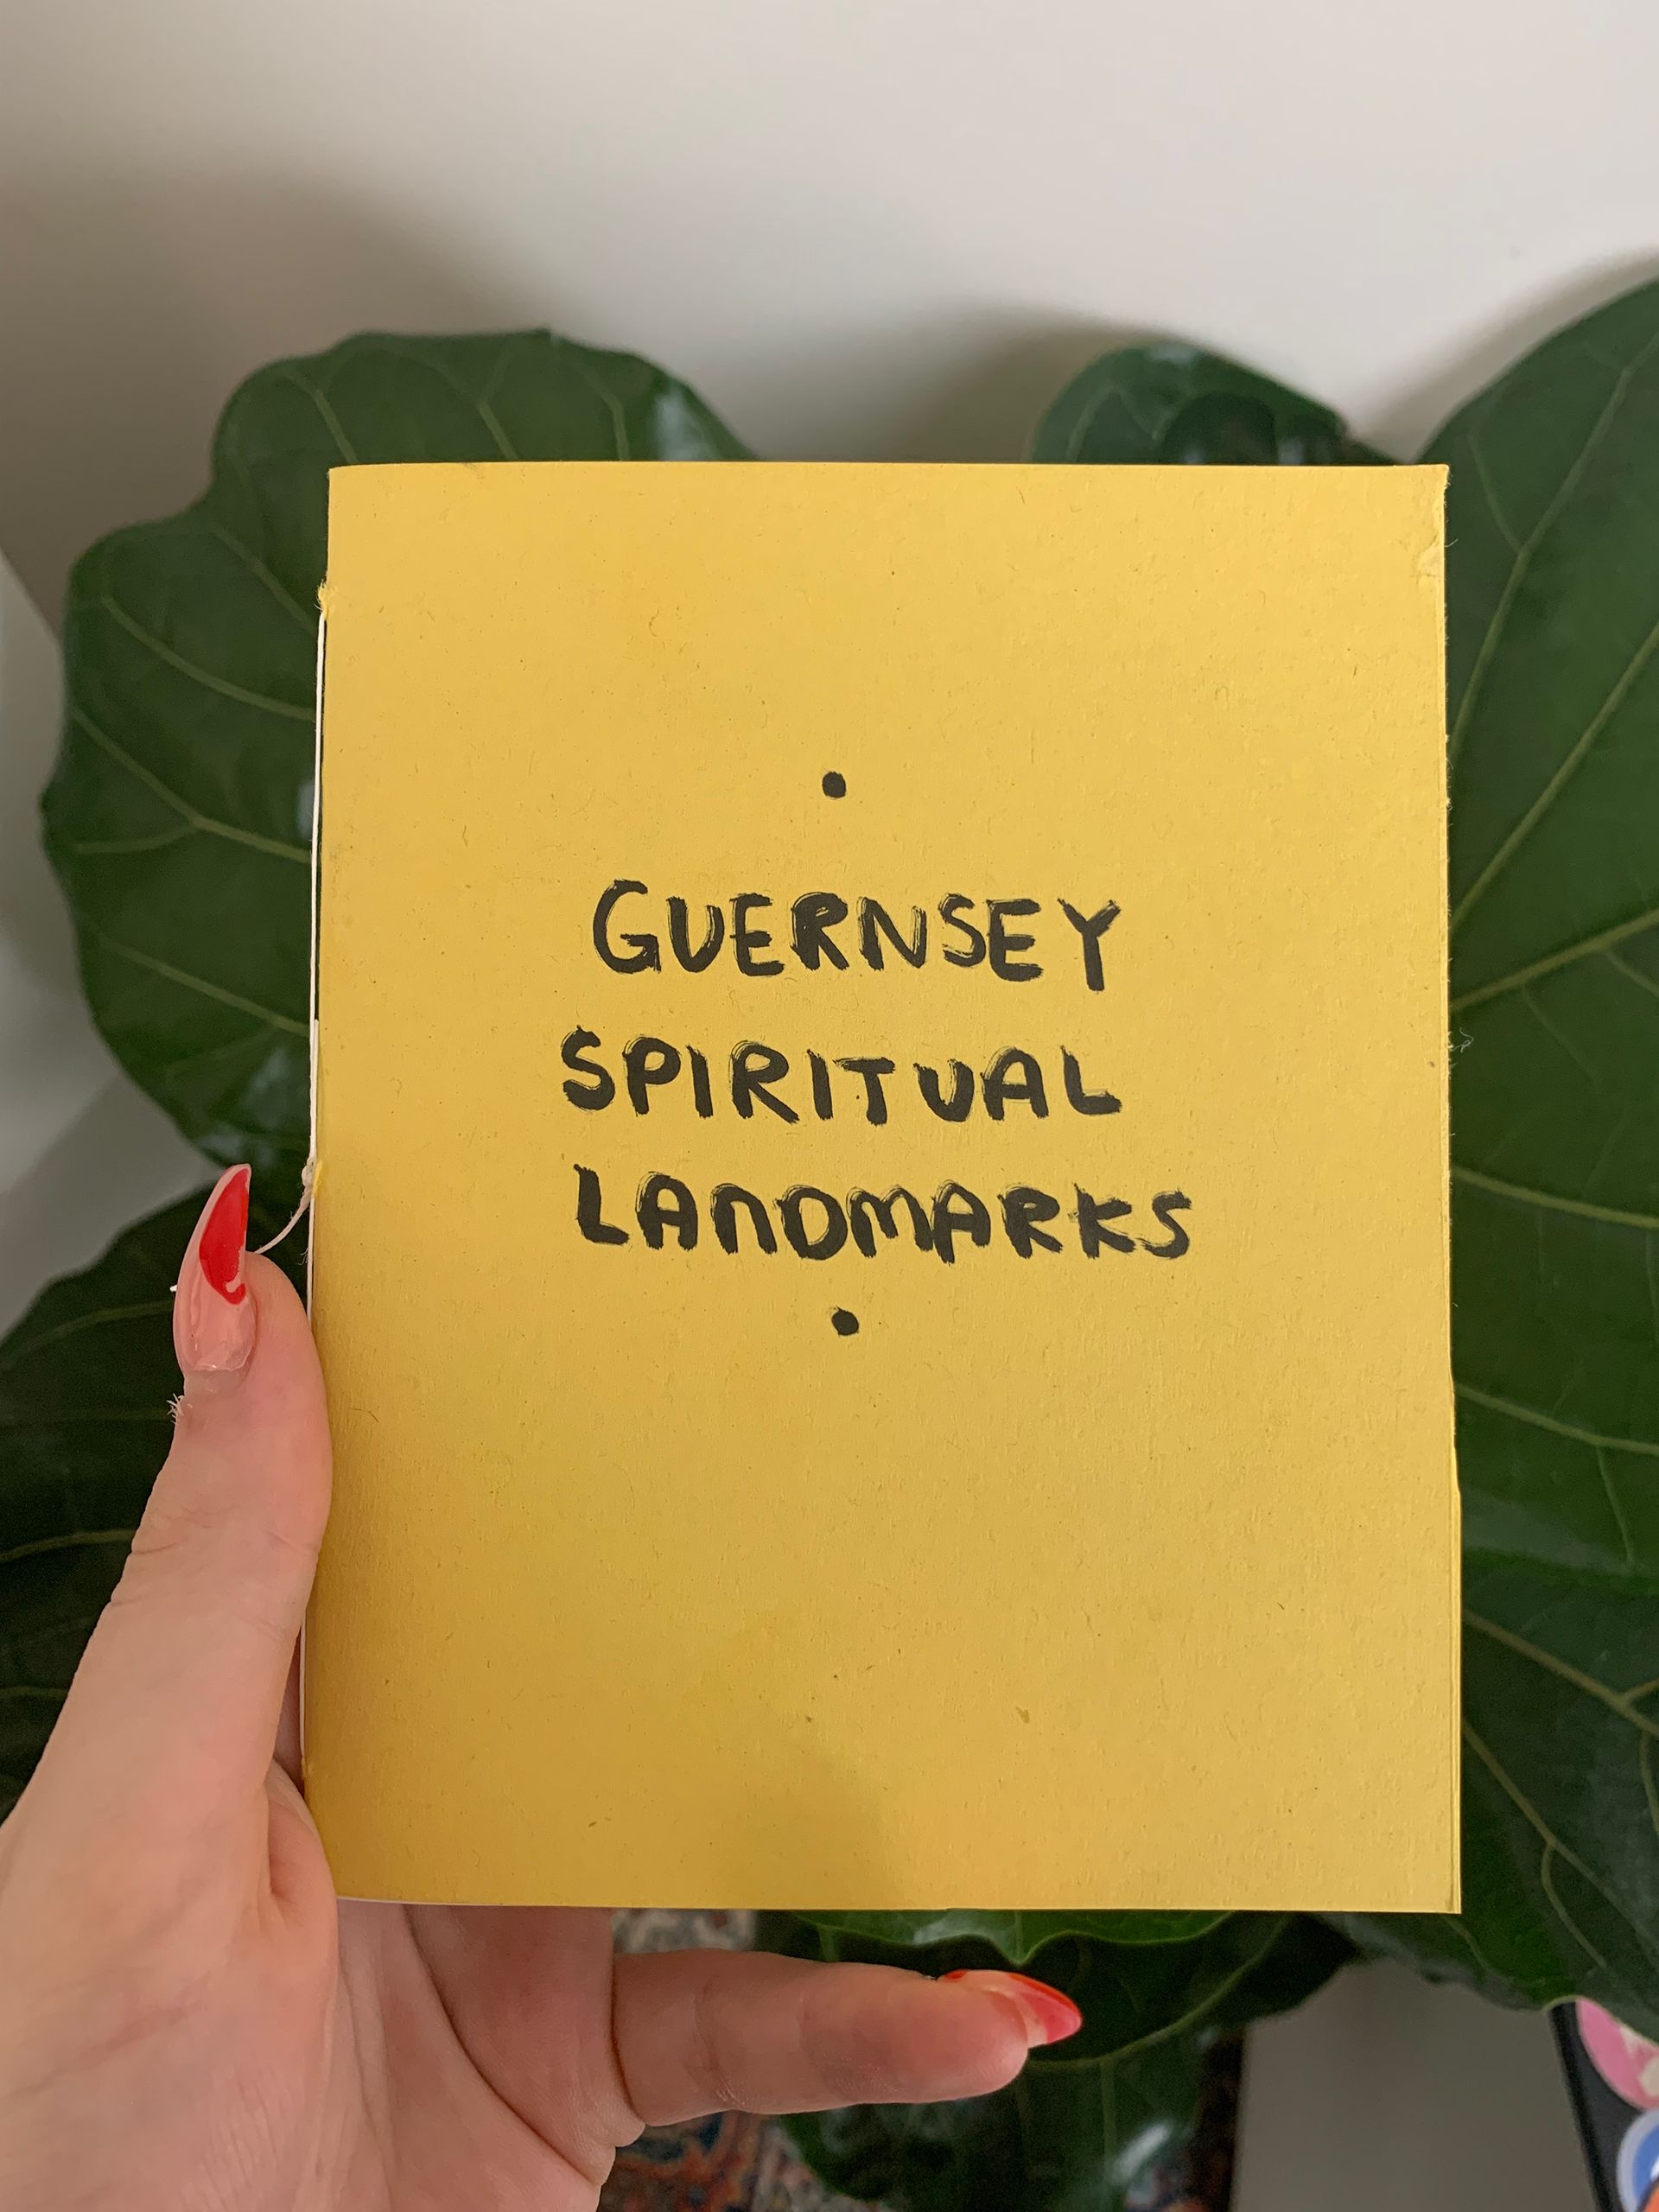 GUERNSEY
SPIRITUAL
LANDMARKS